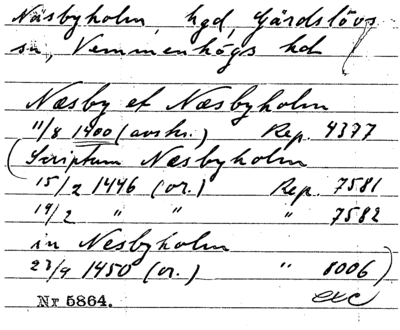 Näsbyholm, hgd, Gärdslövs
sn, Vemmenhögs hd
Næsby et Næsbyholm
11/8 1400 (avskr.) Rep. 4377
(Scriptum Næsbyholm
15/2 1446 (or.) Rep. 7581
14/2 " " " 7582
in Nesbyholm
23/9 1450 (or.) " 8006)
exc
Nr 5864.